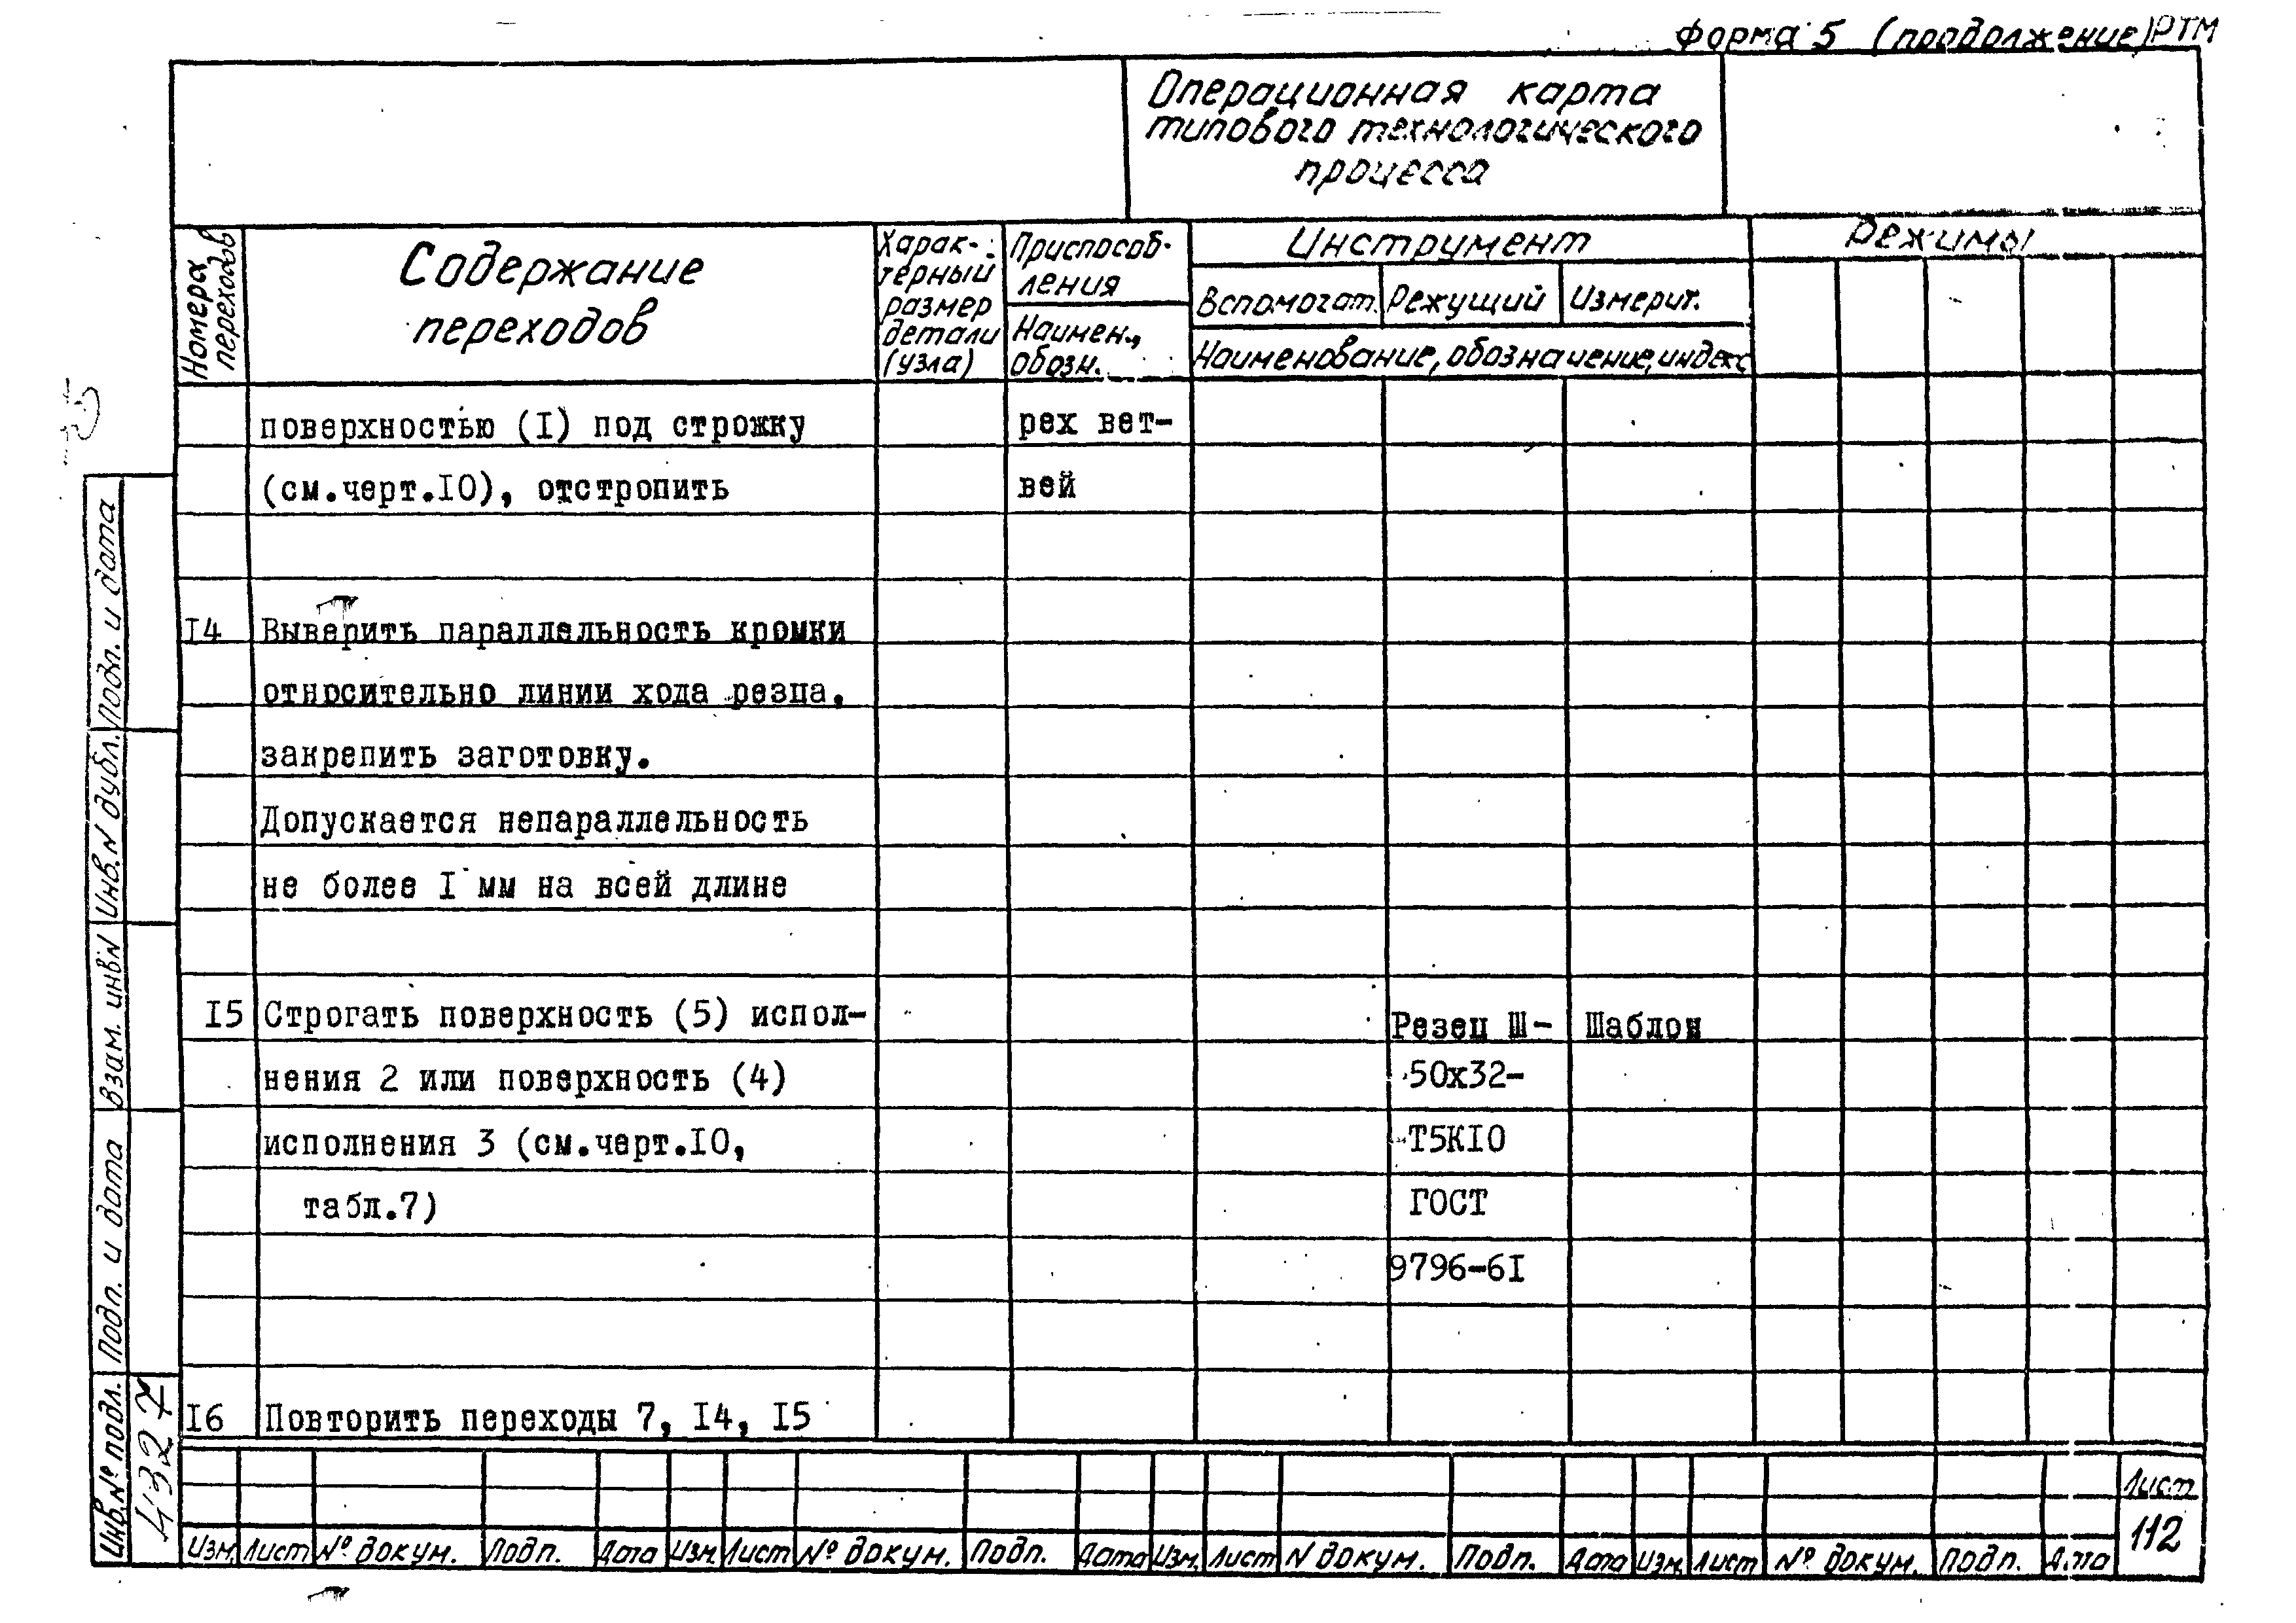 форма 5 (продолжение) РТМ
Операционная карта
типового технологического
процесса
Номера
переходов
Содержание
переходов
Харак-
терный
размер
детали
(узла)
Приспособ-
ления
Наимен.,
обозн.
Инструмент
Вспомогат. Режущий Измерит.
Наименование, обозначение, индекс
Режимы
поверхностью (I) под строжку рех вет-
(см.черт.I0), отстропить вей
I4 Выверить параллельность кромки
относительно линии хода резца,
закрепить заготовку.
Допускается непараллельность
не более I мм на всей длине
I5 Строгать поверхность (5) испол- Резец Ш- Шаблон
нения 2 или поверхность (4) 50х32-
исполнения 3 (см.черт.I0, Т5КI0
табл.7) ГОСТ
9796-6I
I6 Повторить переходы 7, I4, I5
Изм. Лист № докум. Подп. Дата Изм. Лист № докум. Подп. Дата Изм. Лист N докум. Подп. Дата Изм. Лист № докум. Подп. Дата
Лист
112
Подп. и дата
Инв. N дубл.
Взам. инв. N
Подп. и дата
Инв. № подл.
4327